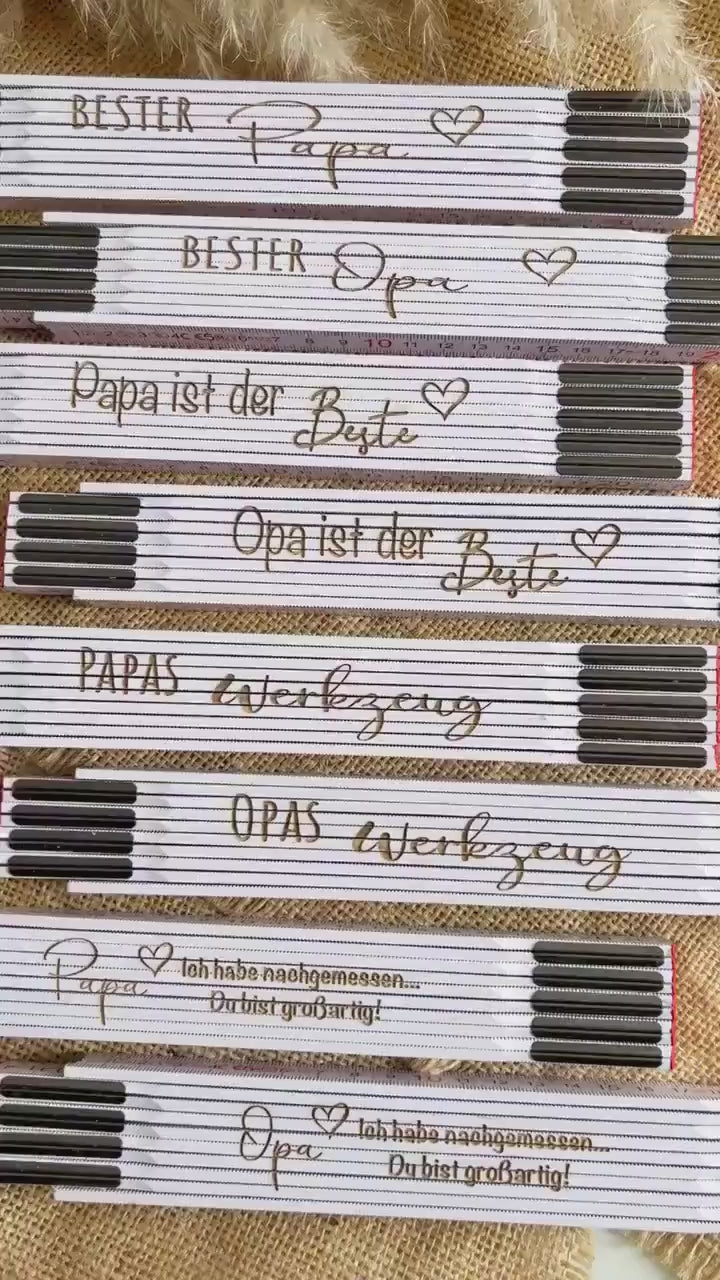 BESTER Papa
BESTER Opa
8 9 10 11 12 13 14 15 16 17 18 19
Papa ist der Beste
Opa ist der Beste
PAPAS Werkzeug
OPAS Werkzeug
Papa Ich habe nachgemessen...
Du bist großartig!
Opa Ich habe nachgemessen...
Du bist großartig!